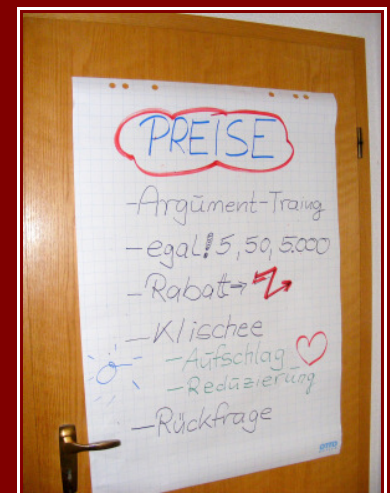 PREISE
-Argument-Traing
-egal! 5, 50, 5.000
-Rabatt→
-Klischee
-Aufschlag
-Reduzierung
-Rückfrage